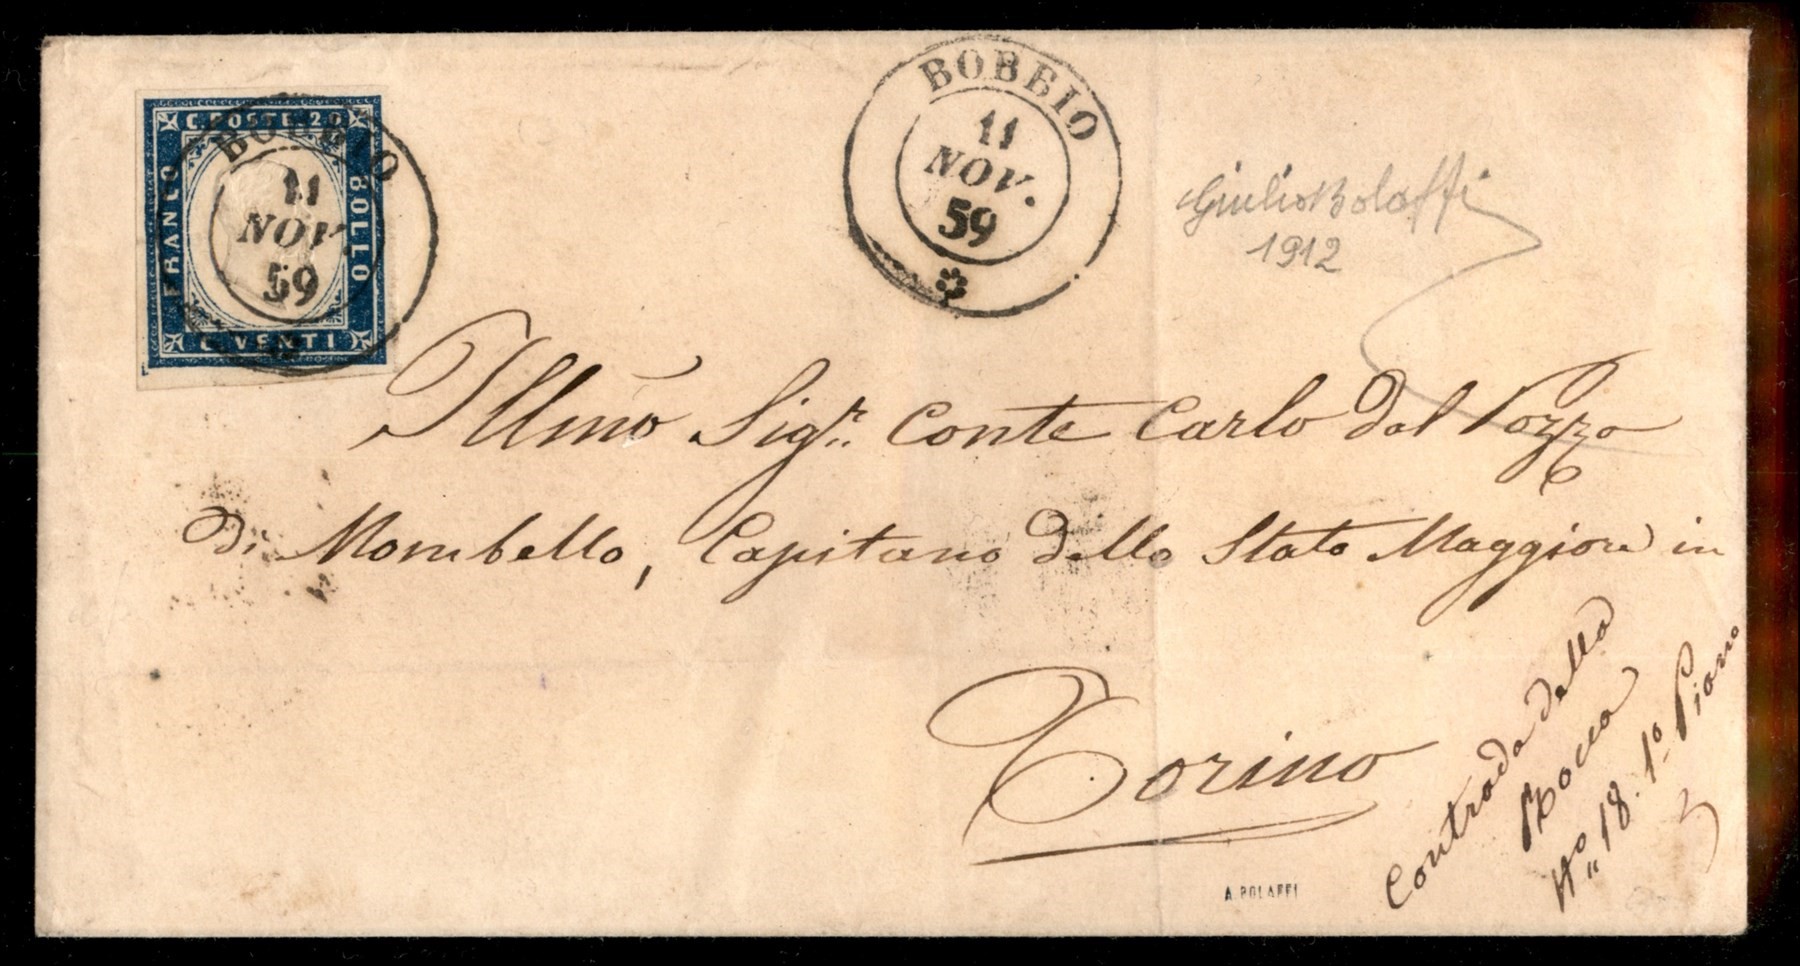 C. POSTE. 20
FRANCO
BOLLO
C. VENTI
BOBBIO
11
NOV.
59
BOBBIO
11
NOV.
59
Giulio Bolaffi
1912
Illmo Sigr. Conte Carlo dal Pozzo
di Mombello, Capitano dello Stato Maggiore in
Torino
Contrada della
Rocca
No 18. 1o Piano
A. BOLAFFI